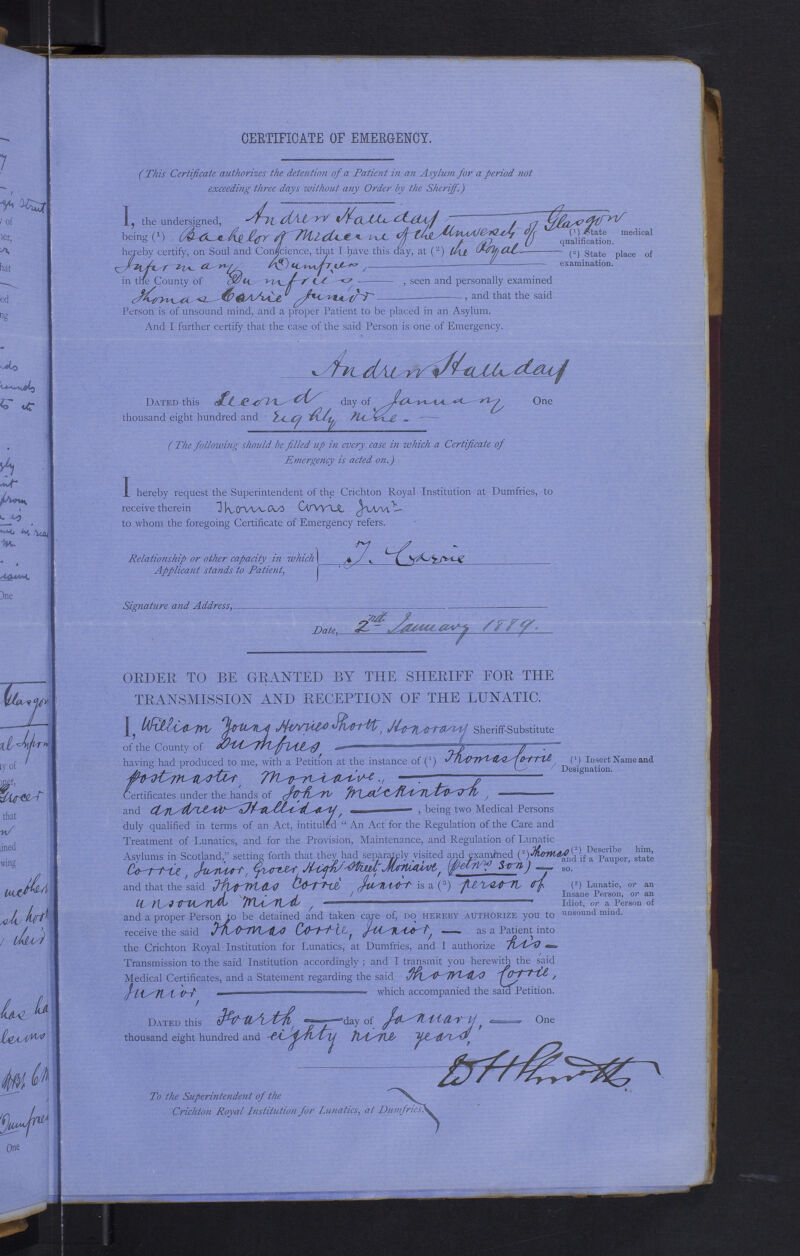 CERTIFICATE OF EMERGENCY.
(This Certificate authorizes the detention of a Patient in an Asylum for a period not
exceeding three days without any Order by the Sheriff.)
I, the undersigned, Andrew Halliday
being (1) Bachelor of Medicine of the University of Glasgow
(1) State medical
qualification.
hereby certify, on Soul and Conscience, that I have this day, at (2) the Royal
(2) State place of
examination.
Infirmary Dumfries,
in the County of Dumfries, seen and personally examined
Thomas Corrie Junior, and that the said
Person is of unsound mind, and a proper Patient to be placed in an Asylum.
And I further certify that the case of the said Person is one of Emergency.
Andrew Halliday
DATED this Second day of January One
thousand eight hundred and eighty nine.
(The following should be filled up in every case in which a Certificate of
Emergency is acted on.)
I hereby request the Superintendent of the Crichton Royal Institution at Dumfries, to
receive therein Thomas Corrie Junr
to whom the foregoing Certificate of Emergency refers.
Relationship or other capacity in which
Applicant stands to Patient,
T. Corrie
Signature and Address,
Date, 2nd January 1889.
ORDER TO BE GRANTED BY THE SHERIFF FOR THE
TRANSMISSION AND RECEPTION OF THE LUNATIC.
I, William Young Herries Shortt, Honorary Sheriff-Substitute
of the County of Dumfries,
having had produced to me, with a Petition at the instance of (1) Thomas Corrie,
(1) Insert Name and
Designation.
postmaster, Moniaive,
Certificates under the hands of John Mackintosh,
and Andrew Halliday, being two Medical Persons
duly qualified in terms of an Act, intituled "An Act for the Regulation of the Care and
Treatment of Lunatics, and for the Provision, Maintenance, and Regulation of Lunatic
Asylums in Scotland," setting forth that they had separately visited and examined (2) Thomas
(2) Describe him,
and if a Pauper, state
so.
Corrie, Junior, Grocer High Street, Moniaive, (Petnrs son)
and that the said Thomas Corrie, Junior is a (3) person of
(3) Lunatic, or an
Insane Person, or an
Idiot, or a Person of
unsound mind.
unsound mind,
and a proper Person to be detained and taken care of, DO HEREBY AUTHORIZE you to
receive the said Thomas Corrie, Junior, as a Patient into
the Crichton Royal Institution for Lunatics, at Dumfries, and I authorize his
Transmission to the said Institution accordingly; and I transmit you herewith the said
Medical Certificates, and a Statement regarding the said Thomas Corrie,
Junior, which accompanied the said Petition.
DATED this Fourth day of January, One
thousand eight hundred and eighty nine years,
W H Shortt
To the Superintendent of the
Crichton Royal Institution for Lunatics, at Dumfries.